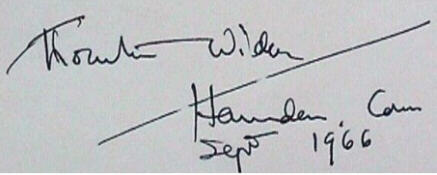 Thornton Wilder
Hamden, Conn
Sept 1966